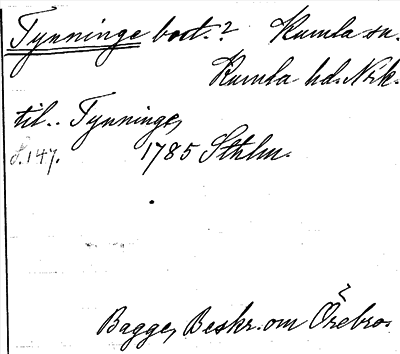 Tynninge bost.? Kumla sn.
Kumla hd. Nrk.
til.. Tynninge,
S. 147. 1785 Sthlm.
Bagge, Beskr. om Örebro.